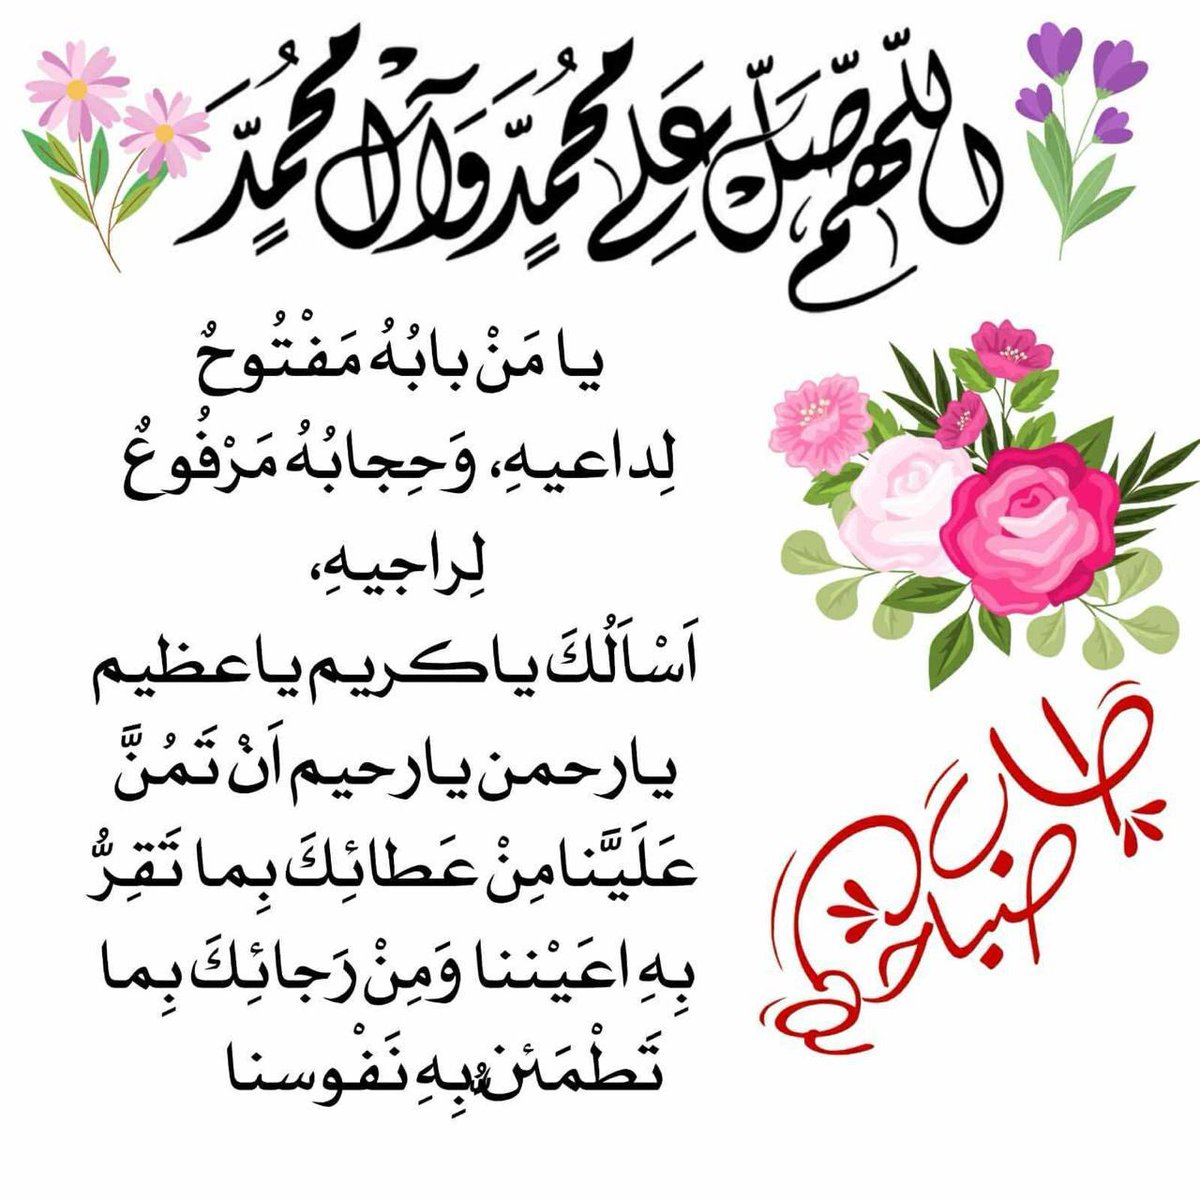 اللهم صَلِّ عَلى محُمَّدٍ وَآل محُمَّدٍ
يا مَنْ بابُهُ مَفْتُوحٌ
لِداعيهِ، وَحِجابُهُ مَرْفُوعٌ
لِراجيهِ،
اَسْاَلُكَ ياكريم ياعظيم
يارحمن يارحيم اَنْ تَمُنَّ
عَلَيَّنامِنْ عَطائِكَ بِما تَقِرُّ
بِهِ اعَيْننا وَمِنْ رَجائِكَ بِما
تَطْمَئنُّ بِهِ نَفْوسنا
طاب
صباحكم